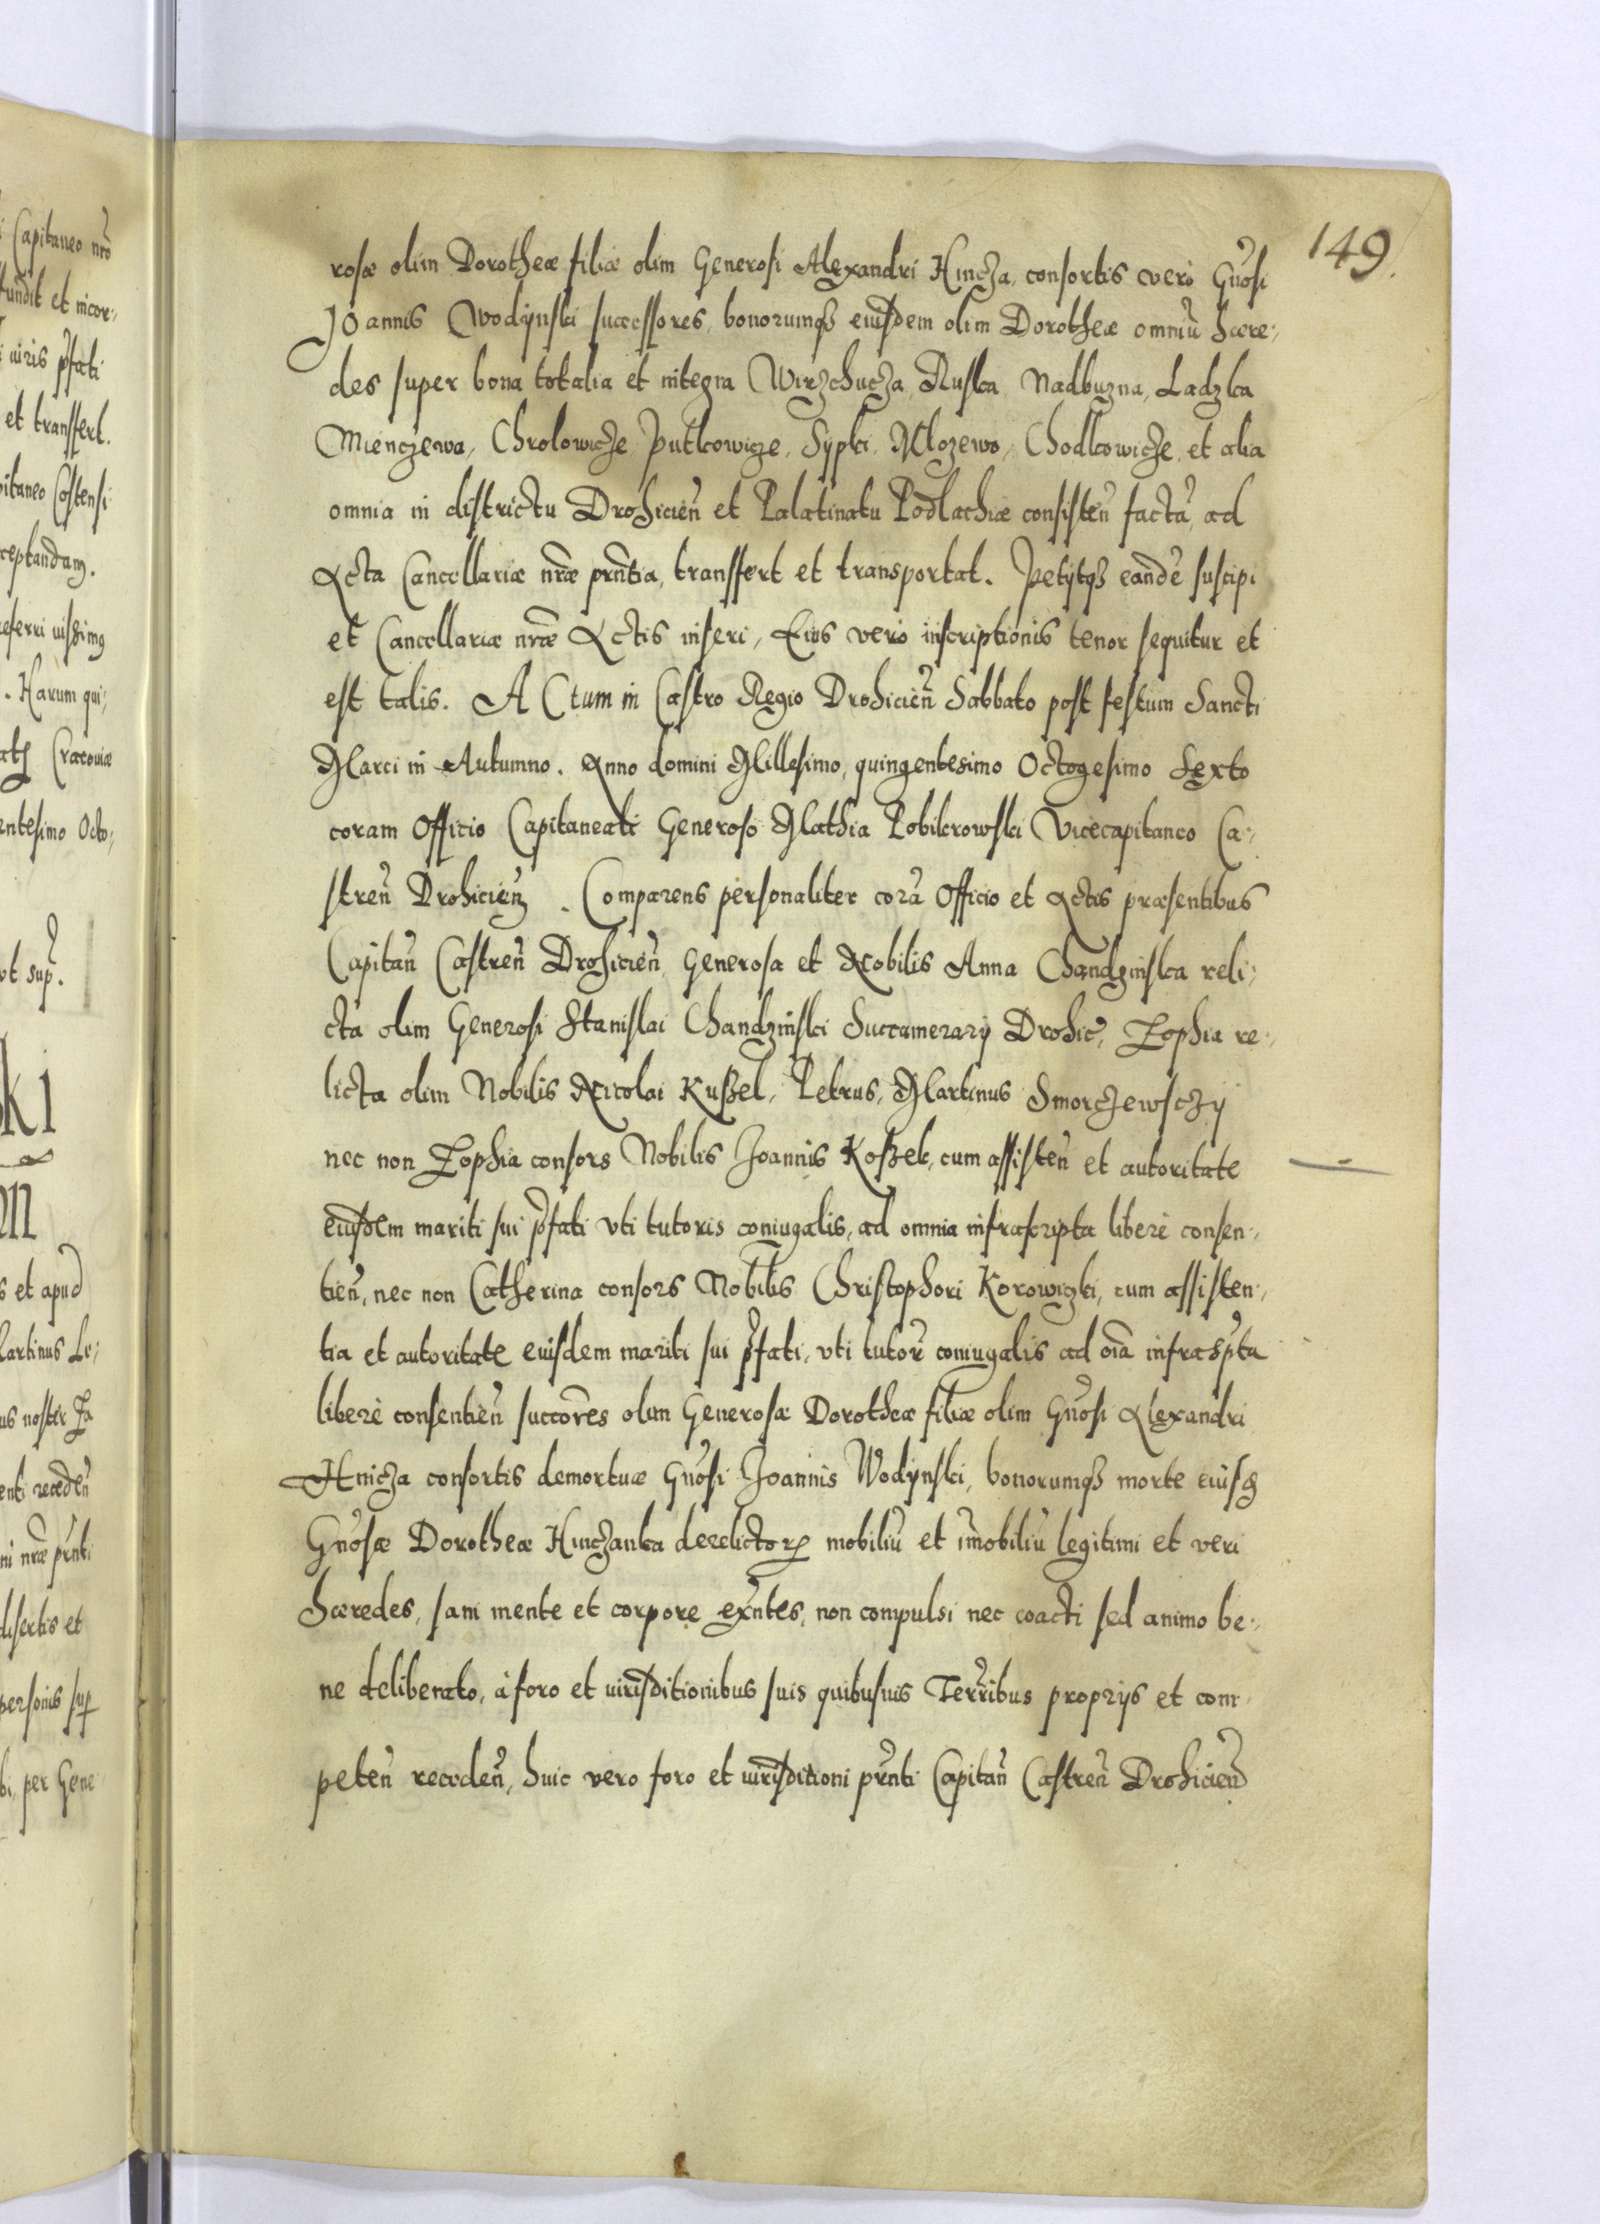 149.
rosæ olim Dorotheæ filiæ olim Generosi Alexandri Hincza, consortis vero Gnōsi
Joannis Wodijnski successores, bonorumqȝ eiusdem olim Dorotheæ omniū hære-
des super bona totalia et integra Wirzchucza, Ruska, Nadbuzna, Ladzka
Mienczewa, Chrolowicze, Putkowicze, Sypki, Mlozewo, Chodkowicze, et alia
omnia in districtu Drohicien̄ et Palatinatu Podlachiæ consisten̄ factā, ad
Acta Cancellariæ nr̄æ prn̄tia, transfert et transportat. Petijtqȝ eandē suscipi
et Cancellariæ nr̄æ Actis inseri, Eius vero inscriptionis tenor sequitur et
est talis. ACtum in Castro Regio Drohicien̄ Sabbato post festum Sancti
Marci in Autumno. Anno domini Millesimo, quingentesimo Octogesimo Sexto
coram Officio Capitaneati Generoso Mathia Pobikrowski Vicecapitaneo Ca-
stren̄ Drohicien̄. Comparens personaliter corā Officio et Actis præsentibus
Capitan̄ Castren̄ Drohicien̄ Generosa et Nobilis Anna Chandzinska reli-
cta olim Generosi Stanislai Chandzinski Succamerarij Drohic̄, Zophia re-
licta olim Nobilis Nicolai Kußel, Petrus, Martinus Smorczewsczij
nec non Zophia consors Nobilis Joannis Koßek, cum assisten̄ et autoritate
eiusdem mariti sui p̄fati vti tutoris coniugalis, ad omnia infrascripta libere consen-
tien̄, nec non Catherina consors Nobilis Christophori Korowiczki, cum assisten-
tia et autoritate eiusdem mariti sui p̄fati, vti tutor̄ coniugalis ad oīa infrasp̄ta
libere consentien̄ succōres olim Generosæ Dorotheæ filiæ olim Gnōsi Alexandri
Hnicza consortis demortuæ Gnōsi Joannis Wodijnski, bonorumqȝ morte eiusd
Gnōsæ Dorotheæ Hinczanka derelictorꝝ mobiliū et im̄obiliū legitimi et veri
hæredes, sani mente et corpore exn̄tes, non compulsi nec coacti sed animo be-
ne deliberato, à foro et iurisditionibus suis quibusuis Terr̄ibus proprijs et com-
peten̄ receden̄, huic vero foro et iurisditioni prn̄ti Capitan̄ Castren̄ Drohicien̄